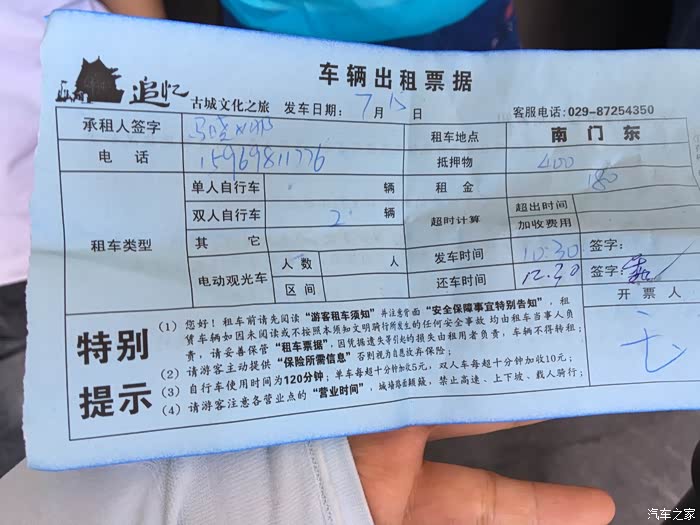 车辆出租票据
追忆
古城文化之旅 发车日期: 7 月 15 日 客服电话:029-87254350
承租人签字 租车地点 南门东
电话 15969811776 抵押物 400
租车类型 单人自行车 辆 租金 180
双人自行车 2 辆 超时计算 超出时间
加收费用
其它
电动观光车 人数 人 发车时间 10:30 签字:
区间 还车时间 12.30 签字:
开票人
特别提示
(1) 您好!租车前请先阅读“游客租车须知”并注意背面“安全保障事宜特别告知”,租
赁车辆如因未阅读或不按照本须知文明骑行所发生的任何安全事故 均由租车当事人负
责,请妥善保管“租车票据”,因凭据遗失等引起的损失由租用者负责,车辆不得转租;
(2) 请游客主动提供“保险所需信息”否则视为自愿放弃保险;
(3) 自行车使用时间为120分钟;单车每超十分钟加收5元,双人车每超十分钟加收10元;
(4) 请游客注意各营业点的“营业时间”,城墙路面颠簸,禁止高速、上下坡、载人骑行;
汽车之家